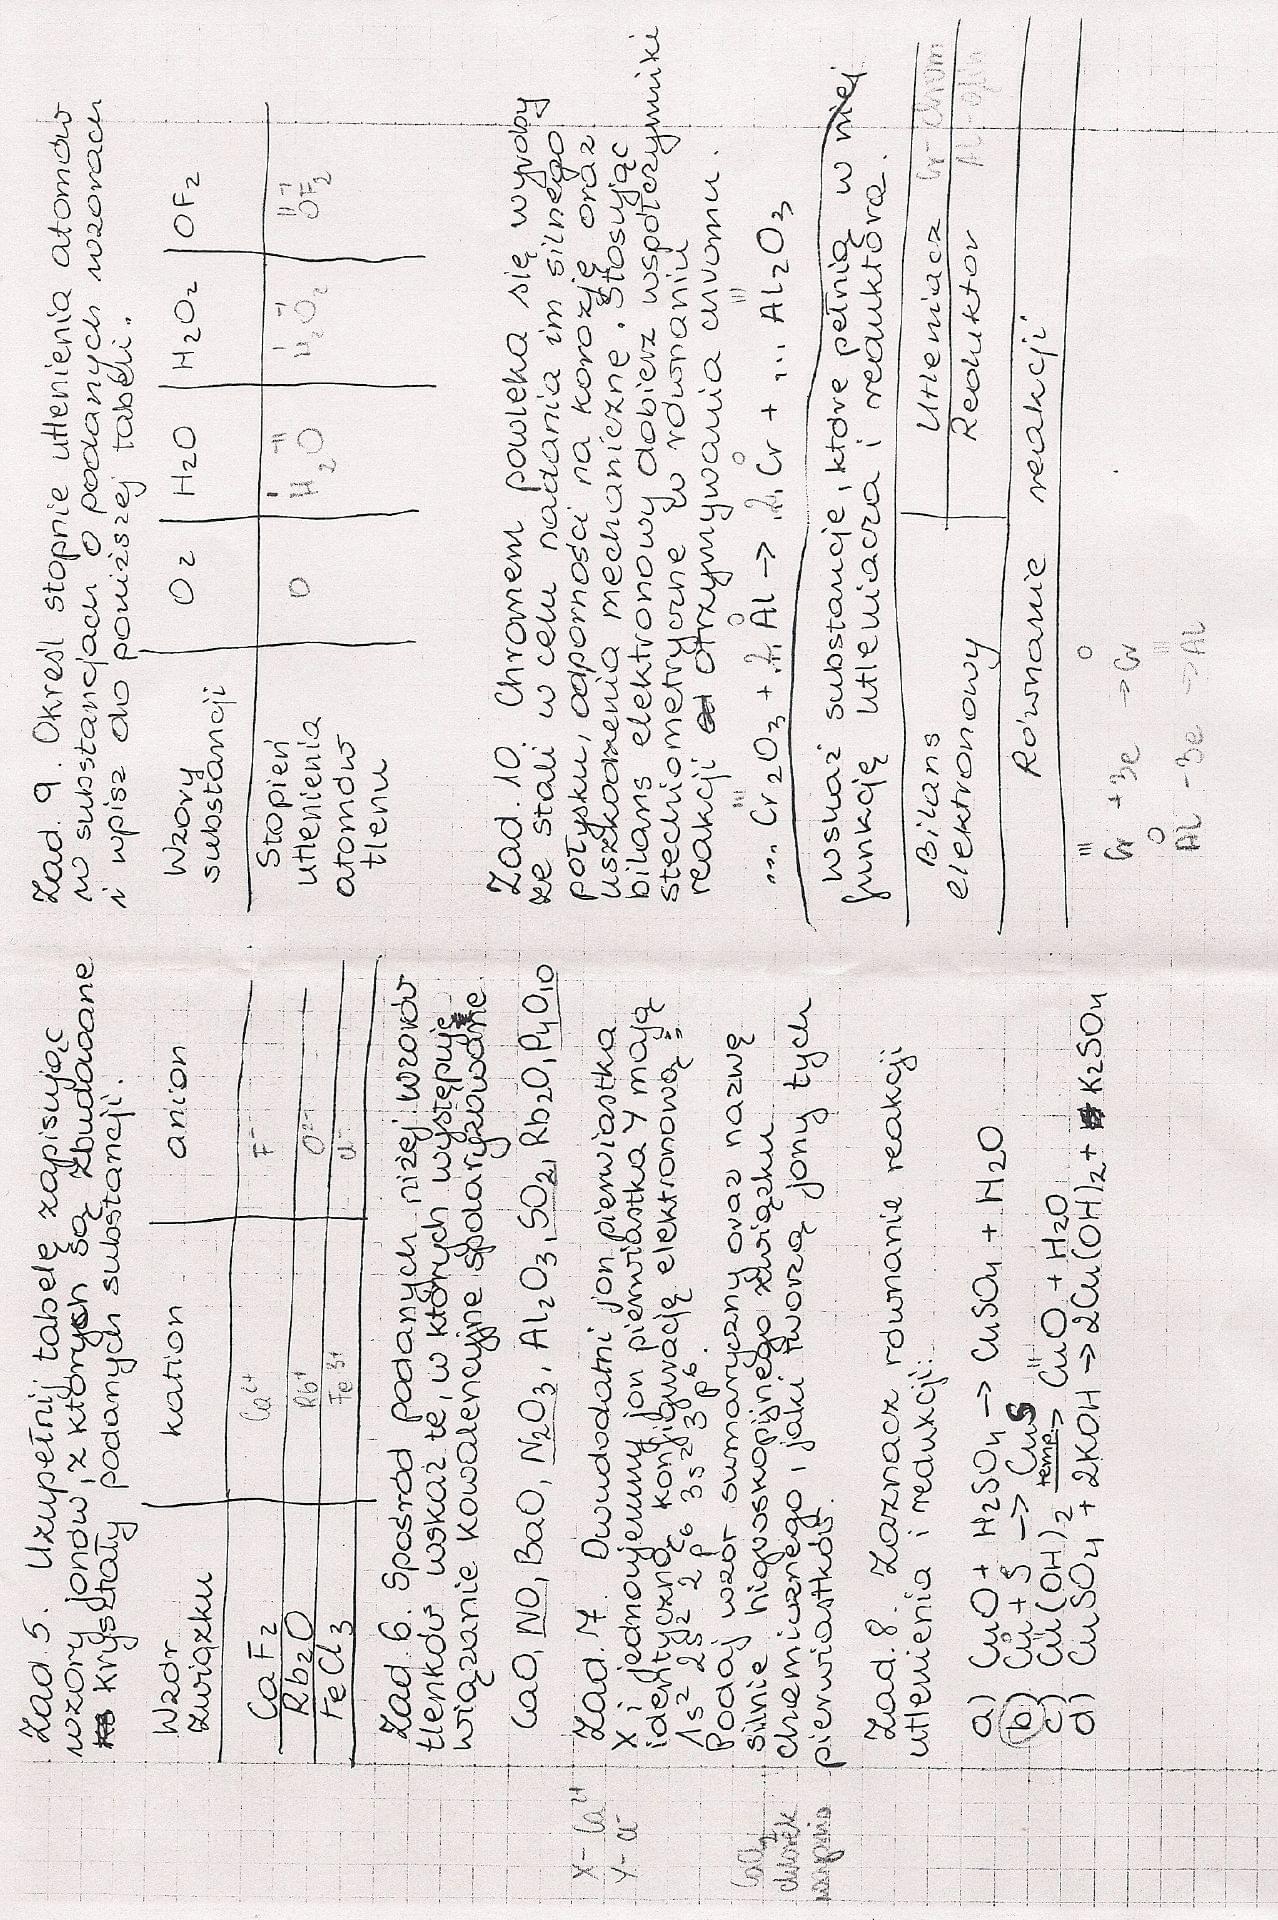 Zad. 5. Uzupełnij tabelę zapisując
wzory jonów, z których są zbudowane
kryształy podanych substancji.
Wzór związku | kation | anion
CaF2 | Ca2+ | F-
Rb2O | Rb+ | O2-
FeCl3 | Fe3+ | Cl-
Zad. 6. Spośród podanych niżej wzorów
tlenków wskaż te, w których występuje
wiązanie kowalencyjne spolaryzowane
CaO, NO, BaO, N2O3, Al2O3, SO2, Rb2O, P4O10
Zad. 7. Dwudodatni jon pierwiastka
X i jednoujemny jon pierwiastka Y mają
identyczną konfigurację elektronową:
1s2 2s2 2p6 3s2 3p6.
Podaj wzór sumaryczny oraz nazwę
silnie higroskopijnego związku
chemicznego, jaki tworzą jony tych
pierwiastków.
X - Ca2+
Y - Cl-
CaCl2
chlorek
wapnia
Zad. 8. Zaznacz równanie reakcji
utlenienia i redukcji:
a) CuO + H2SO4 → CuSO4 + H2O
b) Cu + S → CuS
c) Cu(OH)2 temp.→ CuO + H2O
d) CuSO4 + 2KOH → 2Cu(OH)2 + K2SO4
Zad. 9. Określ stopnie utlenienia atomów
w substancjach o podanych wzorach
i wpisz do poniższej tabeli.
Wzory substancji | O2 | H2O | H2O2 | OF2
Stopień utlenienia atomów tlenu | O | H2O | H2O2 | OF2
Zad. 10. Chromem powleka się wyroby
ze stali w celu nadania im silnego
połysku, odporności na korozję oraz
uszkodzenia mechaniczne. Stosując
bilans elektronowy dobierz współczynniki
stechiometryczne w równaniu
reakcji otrzymywania chromu.
... Cr2O3 + .2. Al → .2. Cr + ... Al2O3
Wskaż substancje, które pełnią w niej
funkcję utleniacza i reduktora.
Bilans elektronowy | Utleniacz Cr - chrom
Reduktor Al - glin
Równanie reakcji
III Cr +3e → Cr 0
0 Al -3e → Al III